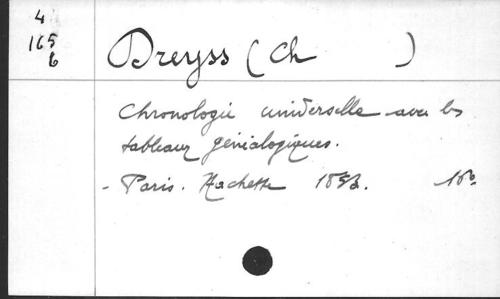 4
165
6
Dreyss (Ch )
Chronologie universelle avec les
tableaux généalogiques.
- Paris. Hachette 1853. 16º